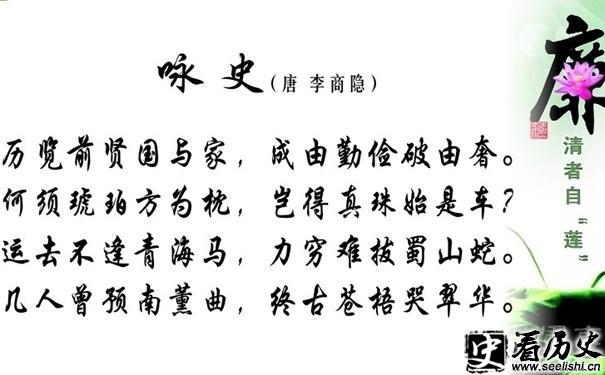 咏史(唐 李商隐)
历览前贤国与家，成由勤俭破由奢。
何须琥珀方为枕，岂得真珠始是车？
运去不逢青海马，力穷难拔蜀山蛇。
几人曾预南薰曲，终古苍梧哭翠华。
廉
清者自“莲”
史 看历史
www.seelishi.cn